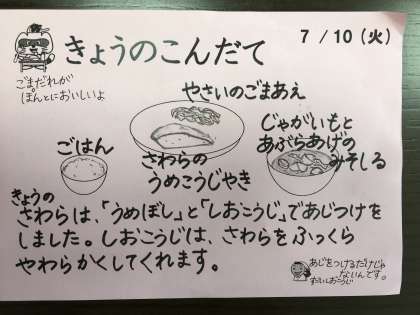 きょうのこんだて
7/10(火)
ごまだれが
ほんとにおいしいよ
やさいのごまあえ
ごはん
さわらの
うめこうじやき
じゃがいもと
あぶらあげの
みそしる
きょうの
さわらは、「うめぼし」と「しおこうじ」であじつけを
しました。しおこうじは、さわらをふっくら
やわらかくしてくれます。
あじをつけるだけじゃ
ないんです。